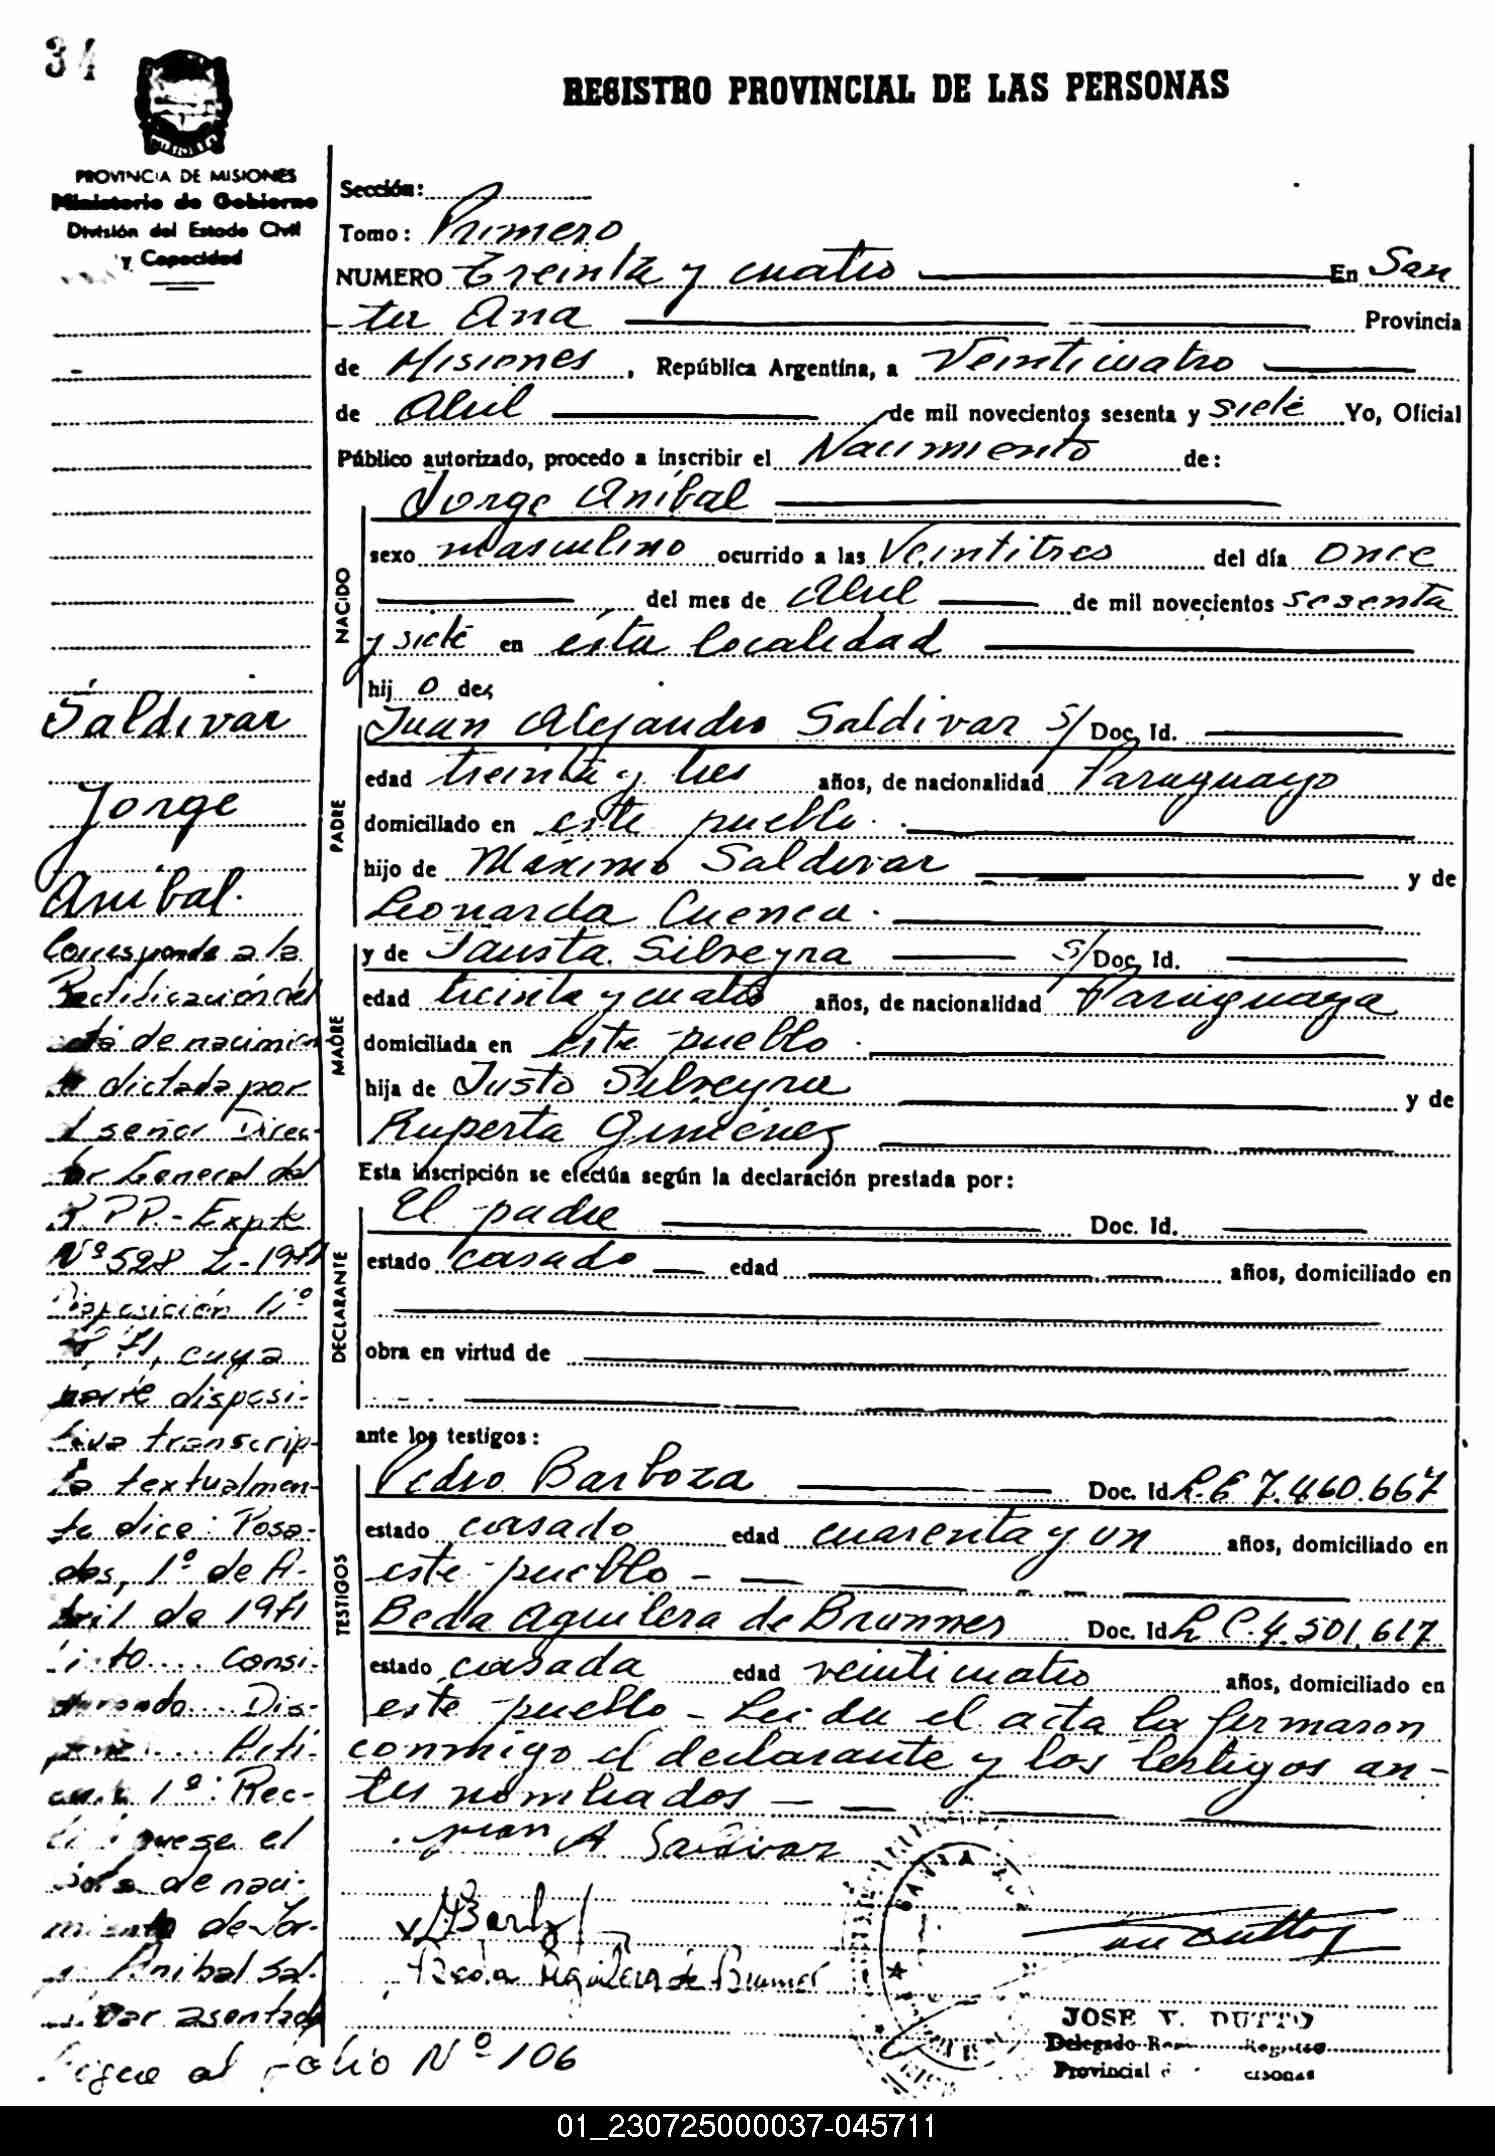 34
REGISTRO PROVINCIAL DE LAS PERSONAS
PROVINCIA DE MISIONES
Ministerio de Gobierno
División del Estado Civil
y Capacidad
Sección:
Tomo: Primero
NUMERO Treinta y cuatro En San
ta Ana Provincia
de Misiones, República Argentina, a Veinticuatro
de Abril de mil novecientos sesenta y siete Yo, Oficial
Público autorizado, procedo a inscribir el Nacimiento de:
Jorge Anibal
NACIDO
sexo masculino ocurrido a las Veintitres del día once
del mes de Abril de mil novecientos sesenta
y siete en esta localidad
hij o de:
Juan Alejandro Saldivar S/ Doc. Id.
PADRE
edad treinta y tres años, de nacionalidad Paraguayo
domiciliado en este pueblo.
hijo de Máximo Saldivar y de
Leonarda Cuenca.
MADRE
y de Fausta Silveyra S/ Doc. Id.
edad treinta y cuatro años, de nacionalidad Paraguaya
domiciliada en este pueblo.
hija de Justo Silveyra y de
Ruperta Gimenez
Esta inscripción se efectúa según la declaración prestada por:
DECLARANTE
El padre Doc. Id.
estado casado edad años, domiciliado en
obra en virtud de
ante los testigos:
TESTIGOS
Pedro Barboza Doc. Id L.E 7.460.667
estado casado edad cuarenta y un años, domiciliado en
este pueblo -
Beda Aguilera de Brunner Doc. Id L C. 4.501.617
estado casada edad veinticuatro años, domiciliado en
este pueblo - Leida el acta la firmaron
conmigo el declarante y los testigos an-
tes nombrados -
Juan A Saldivar
Beda Aguilera de Brunner
SANTA
JOSE V. DUTTO
Delegado Registro
Provincial
Saldivar
Jorge
Anibal.
Corresponde a la
Rectificación del
acta de nacimien
to dictada por
el señor Direc-
tor General del
RPP - Expte
Nº 528
Disposición Nº
71, cuya
parte disposi-
tiva transcrip-
ta textualmen-
te dice: Posa-
das, 1º de A-
bril de 1971
Visto.... Consi-
derando... Dis-
pone.... Artí-
culo 1º: Rec-
tifiquese el
acta de naci-
miento de Jor-
ge Anibal Sal-
divar asentada
Sigue al folio Nº 106
01_230725000037-045711